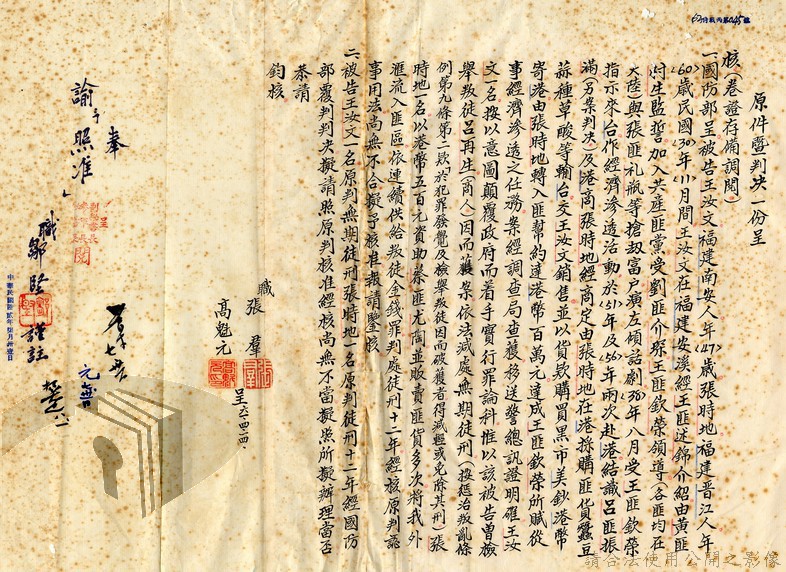 原件暨判決一份呈
核(卷證存備調閱)
一國防部呈被告王汝文福建南安人年(47)歲張時地福建晋江人年
(60)歲民國(30)年(11)月間王汝文在福建安溪經王匪述錦介紹由黃匪
財生監誓加入共產匪黨受劉匪介琛王匪欽榮領導(各匪均在
大陸)與張匪礼瓶等搶刼富戶演左傾話劇(38)年八月受王匪欽榮
指示來台作經濟滲透活動於(51)年及(56)年兩次赴港結識呂匪振
滿(另案判決)及港商張時地經商定由張時地在港採購匪貨蠶豆
菻種草酸等輸台交王汝文銷售並以貨欵購買黑市美鈔港幣
寄港由張時地轉入匪幫約達港幣百萬元達成王匪欽榮所賦從
事經濟滲透之任務案經調查局查獲移送警總訊證明確王汝
文一名按以意圖顛覆政府而着手實行罪論科惟以該被告曾檢
舉叛徒呂再生(商人)因而獲案依法減處無期徒刑(按懲治叛亂條
例第九條第二欵於犯罪發覺及檢舉叛徒因而破獲者得減輕或免除其刑)張
時地一名以港幣五百元資助蔡匪尤崗並販賣匪貨多次將我外
滙流入匪區依連續供給叛徒金錢罪判處徒刑十二年經核原判認
事用法尚無不合擬予核准報請鑒核
二被告王汝文一名原判無期徒刑張時地一名原判徒刑十二年經國防
部覆判判決擬請照原判核准經核尚無不當擬照所擬辦理當否
恭請
鈞核
職張羣
高魁元
呈六二.四.四.
奉
諭「予照准」
職鄒堅謹註
中華民國陸貳年肆月拾壹日
請合法使用公開之影像